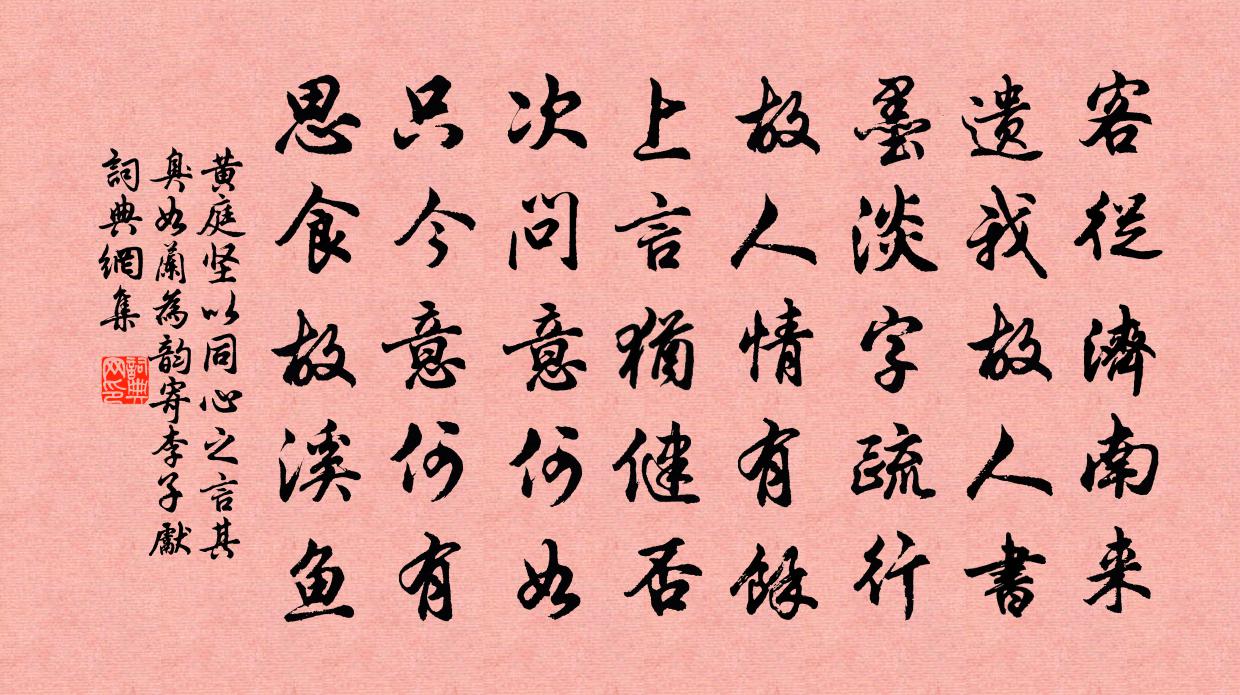 客從濟南来
遗我故人書
墨淡字疏行
故人情有餘
上言猶健否
次问意何如
只今意何有
思食故溪鱼
黄庭坚以同心之言其
臭如蘭為韵寄李子獻
詞典網集
詞典网印